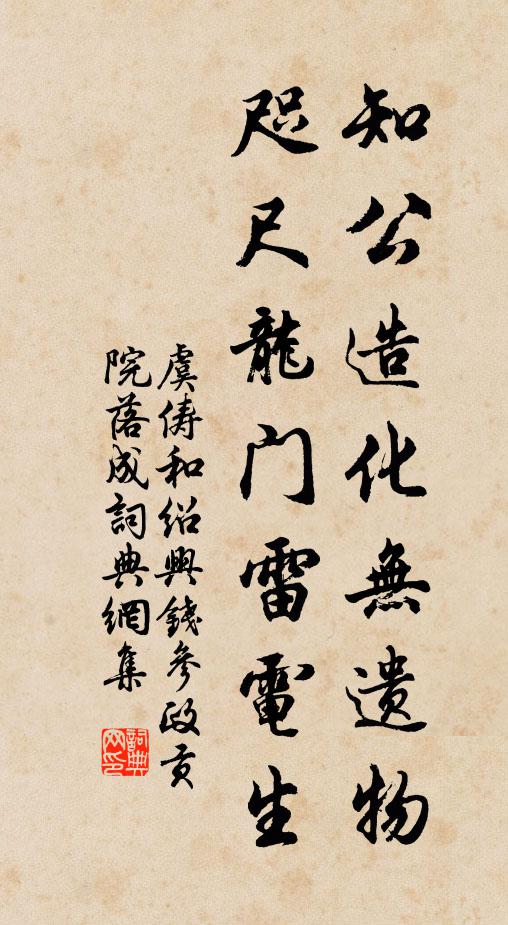 知公造化無遗物
咫尺龍门雷電生
虞俦和绍興錢參政贡
院落成詞典網集
詞典网印